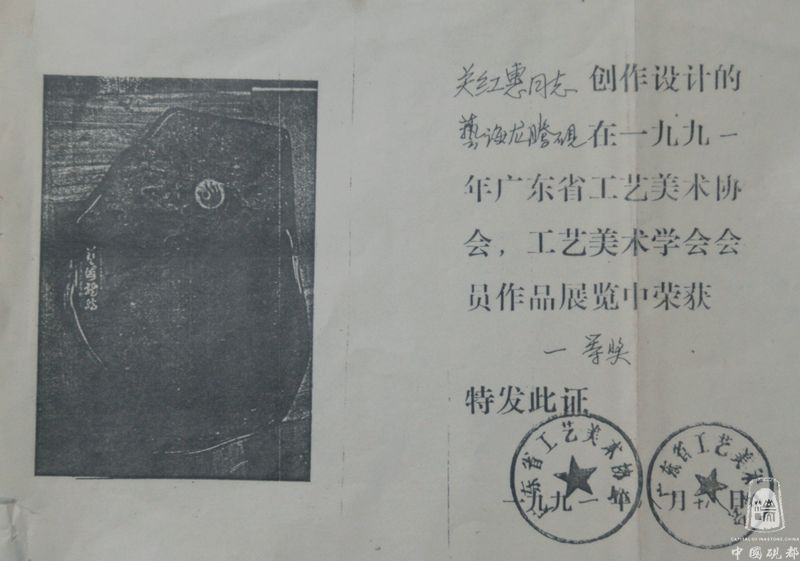 关红惠同志创作设计的
藝海龙腾砚在一九九一
年广东省工艺美术协
会，工艺美术学会会
员作品展览中荣获
一等奖
特发此证
广东省工艺美术协会
广东省工艺美术
一九九一年 月十八日
CAPITAL OF INKSTONE, CHINA
中国砚都